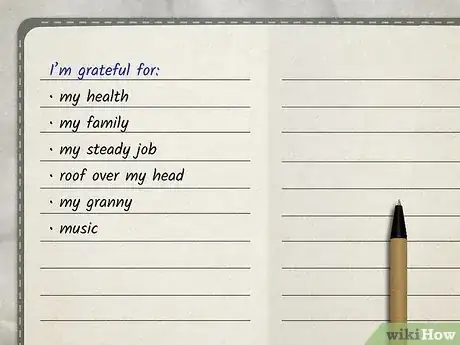 I'm grateful for:
• my health
• my family
• my steady job
• roof over my head
• my granny
• music
wikiHow